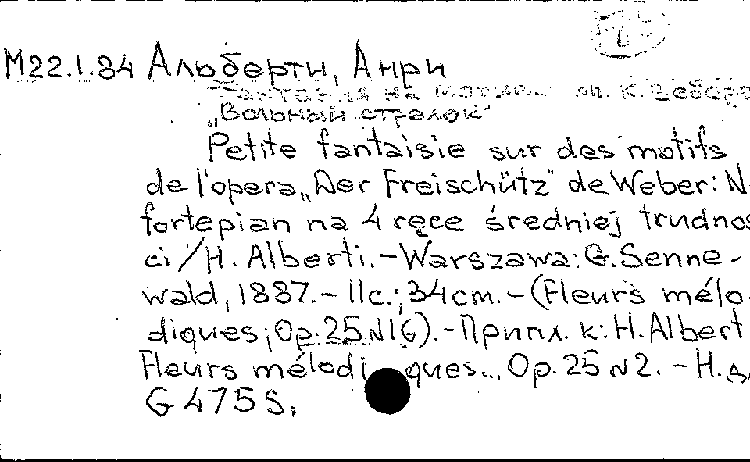 М22.1.84 Альберти, Анри
Фантазия на мотивы оп. К. Вебера
„Вольный стрелок"
Petite fantaisie sur des motifs
de l'opera „Der Freischütz" de Weber: N
fortepian na 4 ręce średniej trudnoś
ci / H. Alberti. – Warszawa: G. Senne-
wald, 1887. – 11 с.; 34 cm. – (Fleurs mélo-
diques; Op. 25 N 1 6). – Припл. к: H. Albert
Fleurs mélodiques... Op. 25 N 2. – Н. д.
G 475 S;